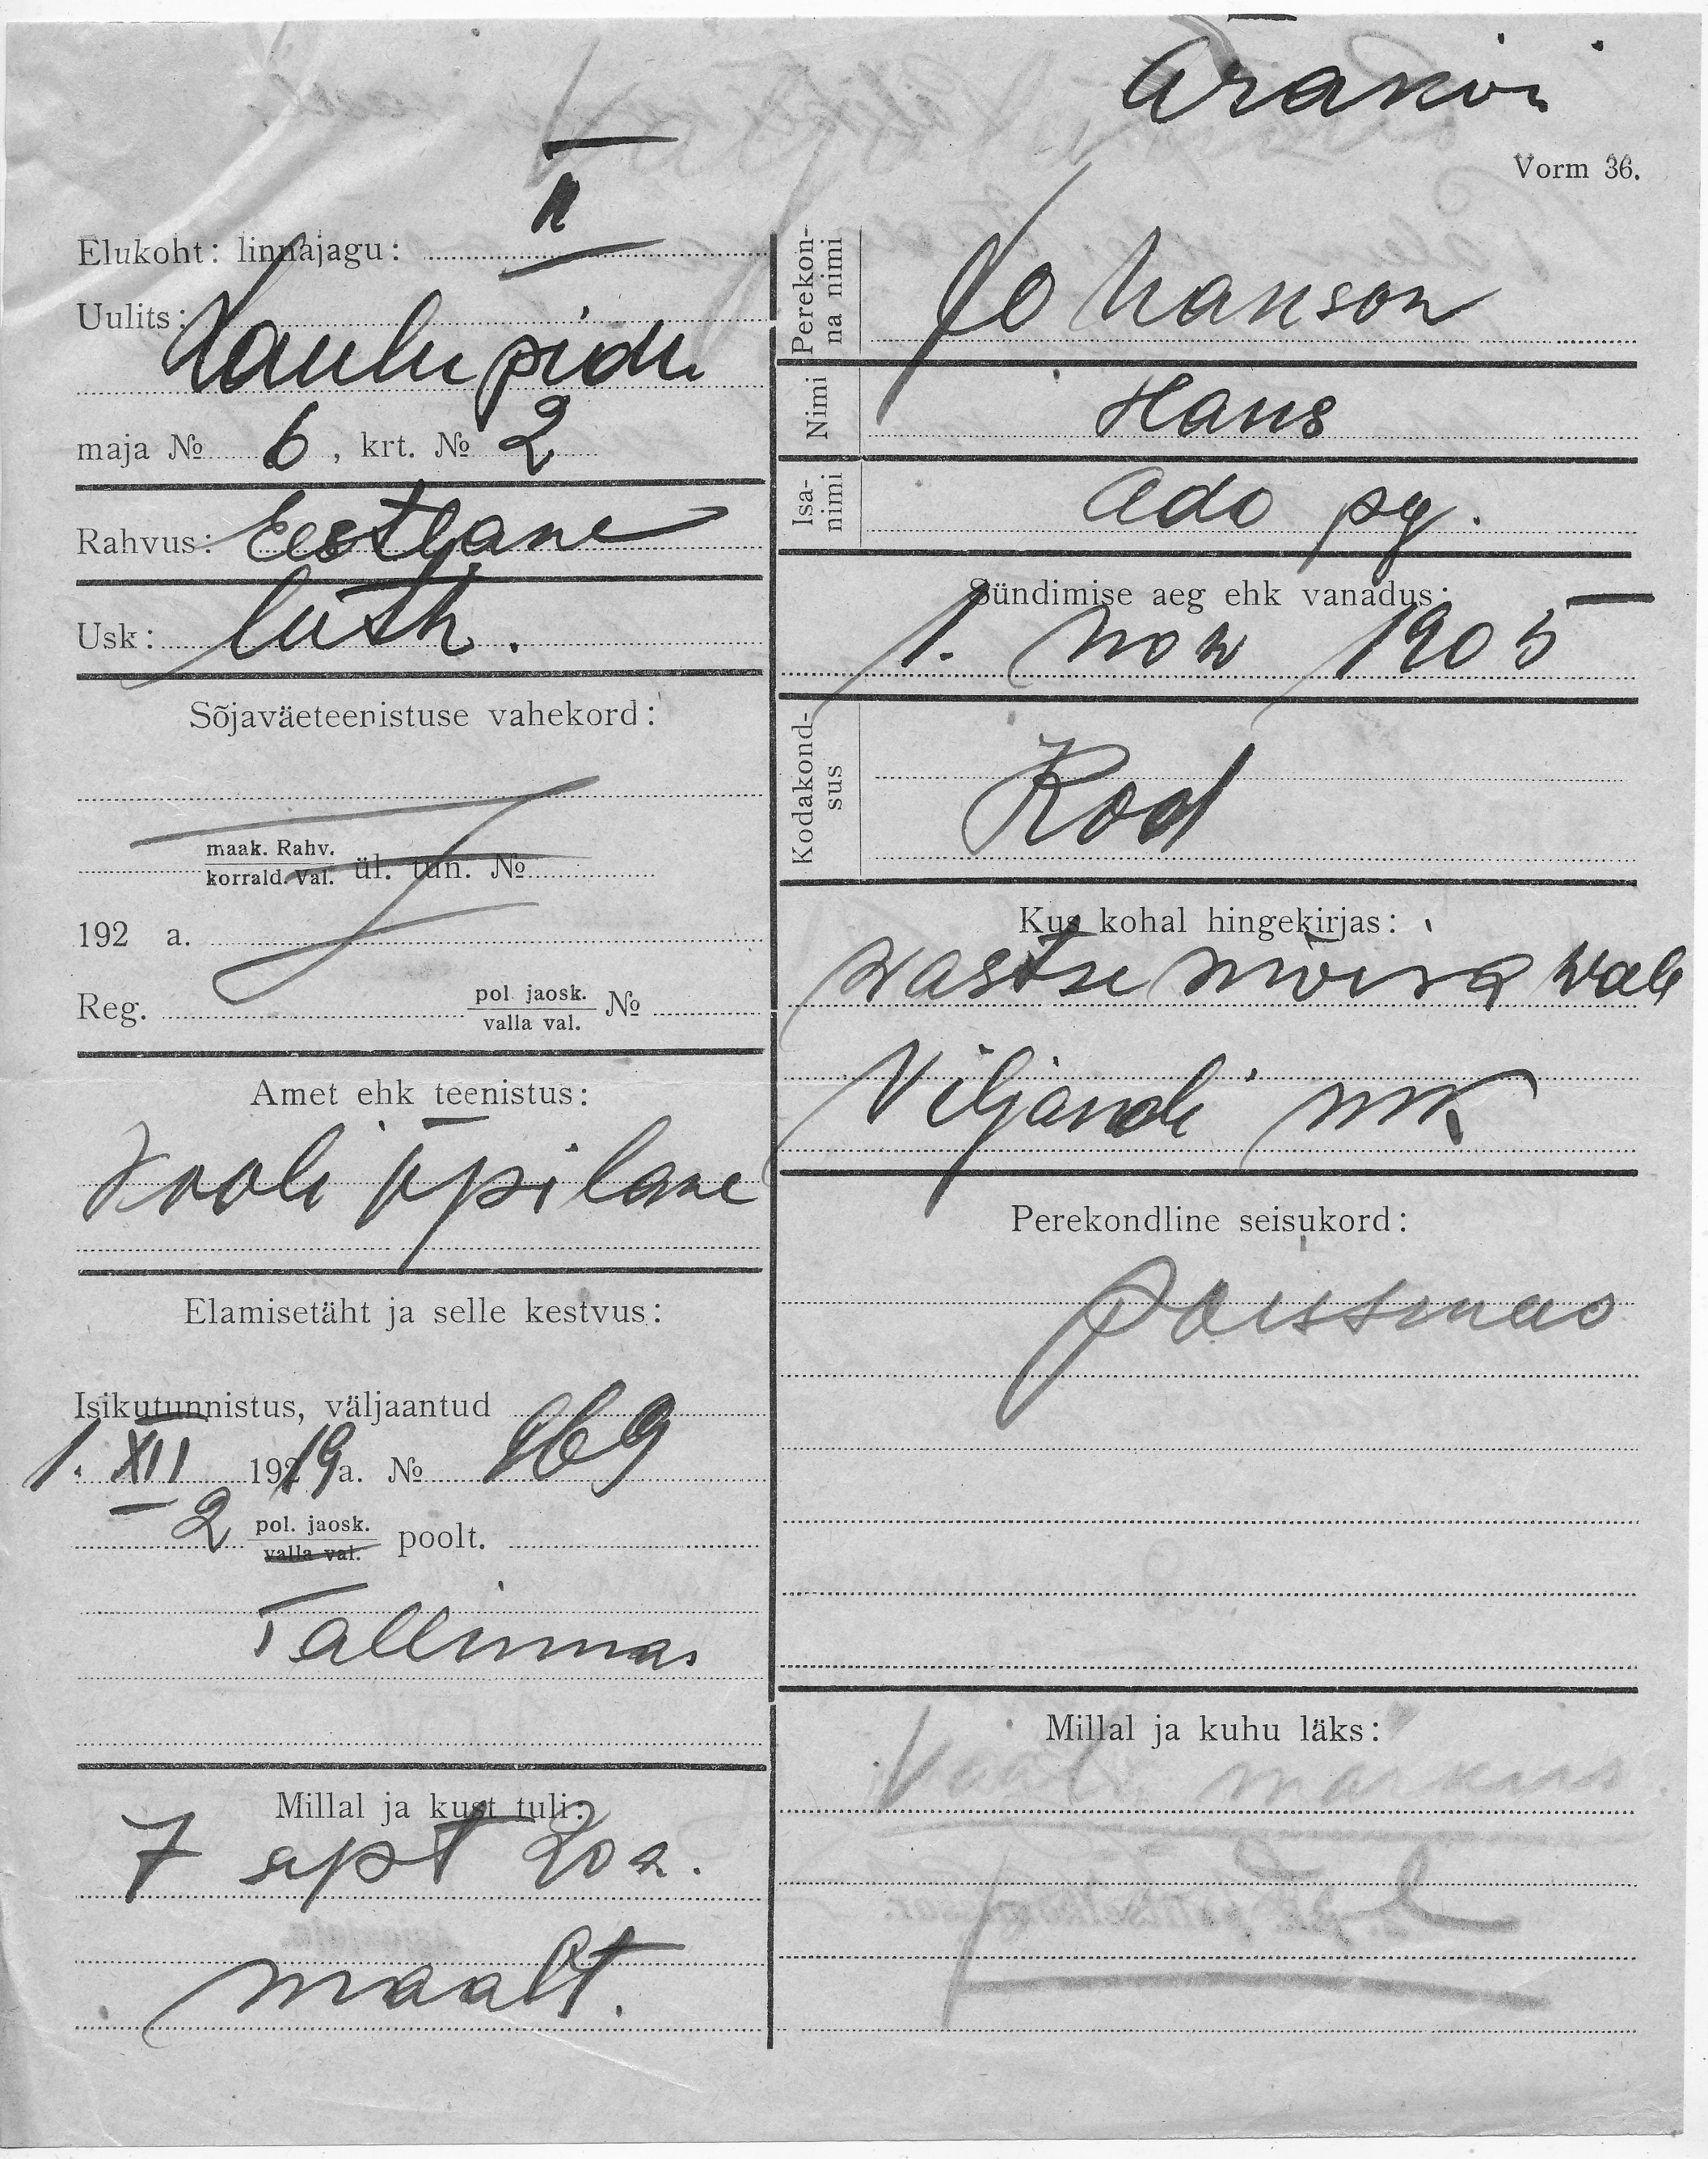 Ärakiri
Vorm 36.
Elukoht: linnajagu: II
Uulits: Laulupidu
maja № 6, krt. № 2
Rahvus: Eestlane
Usk: luth.
Sõjaväeteenistuse vahekord:
maak. Rahv.
korrald. Val. ül. tun. №
192 a.
Reg. pol. jaosk.
valla val. №
Amet ehk teenistus:
Kooli õpilane
Elamisetäht ja selle kestvus:
Isikutunnistus, väljaantud
1. XII 19219a. № 469
2 pol. jaosk.
valla val. poolt.
Tallinnas
Millal ja kust tuli:
7 sept 20 a.
maalt.
Perekonna nimi
Johanson
Nimi
Hans
Isanimi
Ado pg.
Sündimise aeg ehk vanadus:
1. now 1905
Kodakondsus
Kod
Kus kohal hingekirjas:
wastse mõisa wald
Viljandi mk
Perekondline seisukord:
poissmees
Millal ja kuhu läks:
Vaat. märkus